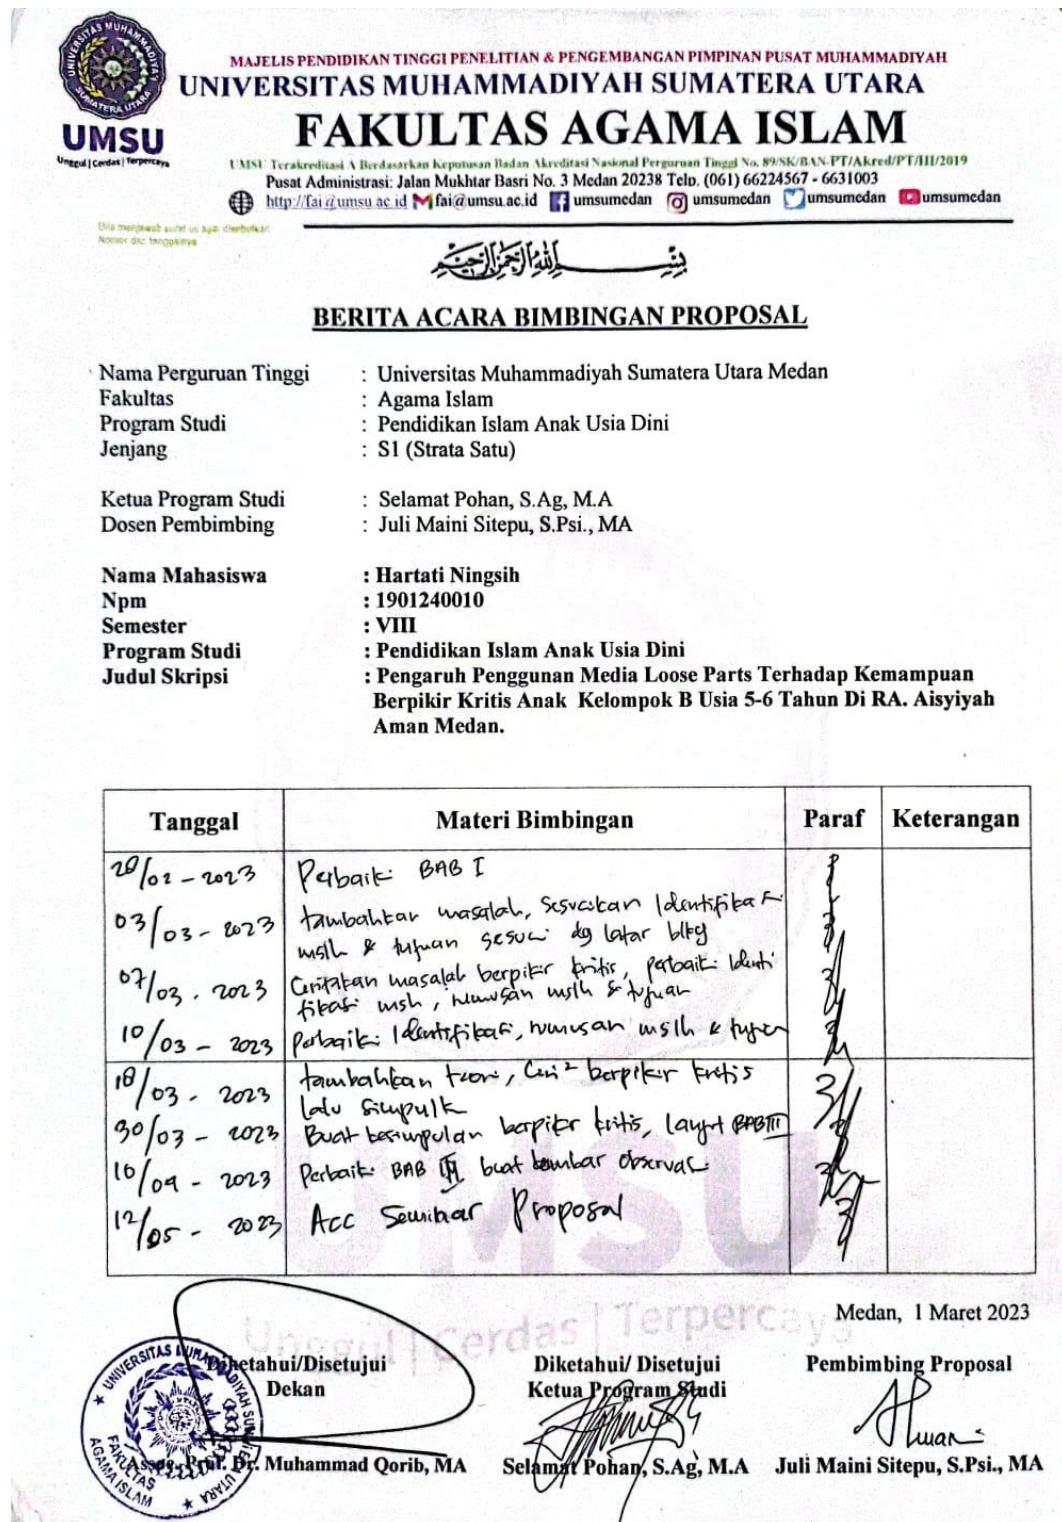 UNIVERSITAS MUHAMMADIYAH
SUMATERA UTARA
UMSU
Unggul | Cerdas | Terpercaya
MAJELIS PENDIDIKAN TINGGI PENELITIAN & PENGEMBANGAN PIMPINAN PUSAT MUHAMMADIYAH
UNIVERSITAS MUHAMMADIYAH SUMATERA UTARA
FAKULTAS AGAMA ISLAM
UMSU Terakreditasi A Berdasarkan Keputusan Badan Akreditasi Nasional Perguruan Tinggi No. 89/SK/BAN-PT/Akred/PT/III/2019
Pusat Administrasi: Jalan Mukhtar Basri No. 3 Medan 20238 Telp. (061) 66224567 - 6631003
http://fai@umsu.ac.id fai@umsu.ac.id umsumedan umsumedan umsumedan umsumedan
Bila menjawab surat ini agar disebutkan
Nomor dan tanggalnya
بِسْمِ اللَّهِ الرَّحْمَٰنِ الرَّحِيمِ
BERITA ACARA BIMBINGAN PROPOSAL
Nama Perguruan Tinggi : Universitas Muhammadiyah Sumatera Utara Medan
Fakultas : Agama Islam
Program Studi : Pendidikan Islam Anak Usia Dini
Jenjang : S1 (Strata Satu)
Ketua Program Studi : Selamat Pohan, S.Ag, M.A
Dosen Pembimbing : Juli Maini Sitepu, S.Psi., MA
Nama Mahasiswa : Hartati Ningsih
Npm : 1901240010
Semester : VIII
Program Studi : Pendidikan Islam Anak Usia Dini
Judul Skripsi : Pengaruh Penggunan Media Loose Parts Terhadap Kemampuan
Berpikir Kritis Anak Kelompok B Usia 5-6 Tahun Di RA. Aisyiyah
Aman Medan.
Tanggal Materi Bimbingan Paraf Keterangan
/02 - 2023 Perbaiki BAB I
03/03 - 2023 tambahkan masalah, sesuaikan Identifikasi
mslh & tujuan sesuai dg latar blkg
07/03 . 2023 Ceritakan masalah berpikir kritis, perbaiki Identi
fikasi mslh, rumusan mslh & tujuan
10/03 - 2023 perbaiki Identifikasi, rumusan mslh & tujuan
18/03 - 2023 tambahkan teori, Ciri² berpikir kritis
lalu simpulk
30/03 - 2023 Buat kesimpulan berpikir kritis, lanjut BAB III
10/04 - 2023 Perbaiki BAB III buat lembar observasi
12/05 - 2023 Acc Seminar Proposal
UMSU
Unggul | Cerdas | Terpercaya
Medan, 1 Maret 2023
Diketahui/Disetujui
Dekan
Diketahui/ Disetujui
Ketua Program Studi
Pembimbing Proposal
UNIVERSITAS MUHAMMADIYAH SUMATERA UTARA
FAKULTAS
AGAMA ISLAM
Assoc. Prof. Dr. Muhammad Qorib, MA
Selamat Pohan, S.Ag, M.A
Juli Maini Sitepu, S.Psi., MA